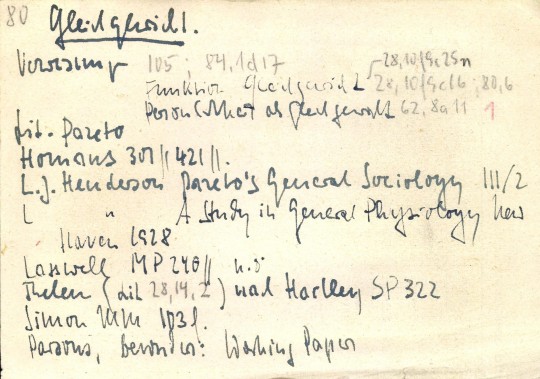 80 Gleichgewicht.
Verweisung 105; 84,1d17
28,10f9c25n
Funktion Gleichgewicht 28,10f9c16; 80,6
Persönlichkeit als Gleichgewicht 62,8a11 1
Lit. Pareto
Homans 301ff 421ff.
L.J. Henderson Pareto's General Sociology III/2
L " A Study in General Physiology New
Haven 1928
Lasswell MP 240ff u.ö
Thelen (Lit 28,14,2) nach Hartley SP 322
Simon MM 193f.
Parsons, besonders: Working Paper